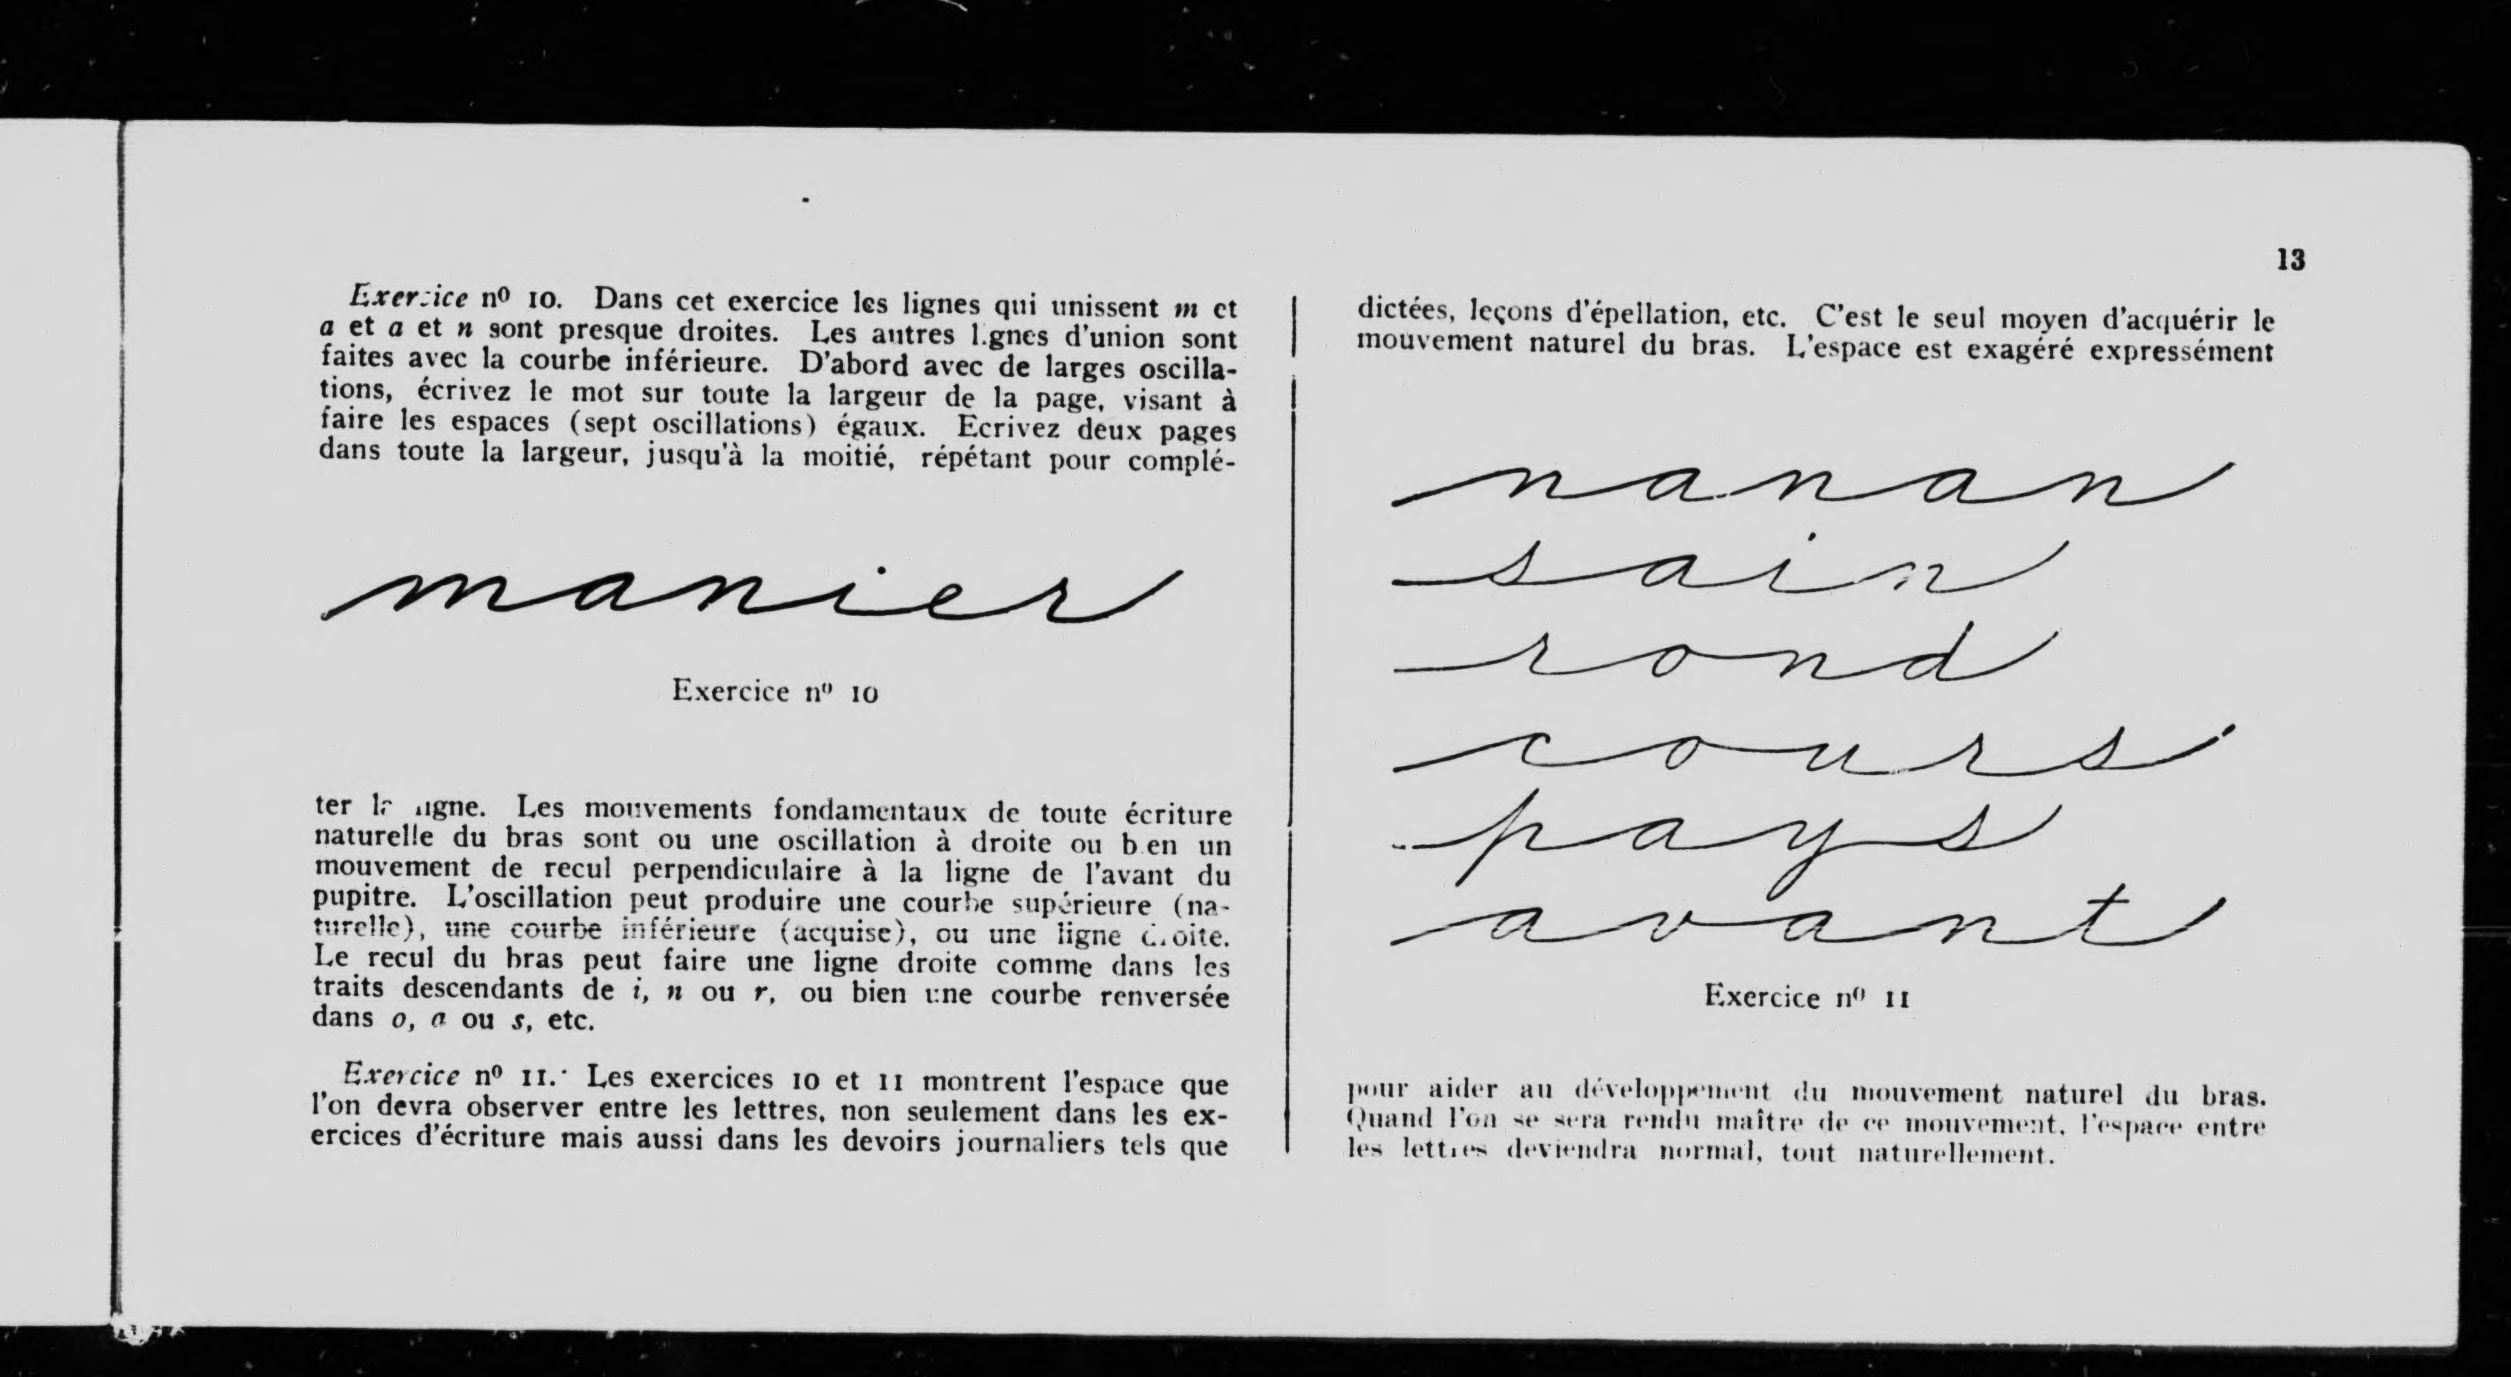 13
Exercice nº 10. Dans cet exercice les lignes qui unissent m et
a et a et n sont presque droites. Les autres lignes d'union sont
faites avec la courbe inférieure. D'abord avec de larges oscilla-
tions, écrivez le mot sur toute la largeur de la page, visant à
faire les espaces (sept oscillations) égaux. Ecrivez deux pages
dans toute la largeur, jusqu'à la moitié, répétant pour complé-
manier
Exercice nº 10
ter la ligne. Les mouvements fondamentaux de toute écriture
naturelle du bras sont ou une oscillation à droite ou bien un
mouvement de recul perpendiculaire à la ligne de l'avant du
pupitre. L'oscillation peut produire une courbe supérieure (na-
turelle), une courbe inférieure (acquise), ou une ligne droite.
Le recul du bras peut faire une ligne droite comme dans les
traits descendants de i, n ou r, ou bien une courbe renversée
dans o, a ou s, etc.
Exercice nº 11. Les exercices 10 et 11 montrent l'espace que
l'on devra observer entre les lettres, non seulement dans les ex-
ercices d'écriture mais aussi dans les devoirs journaliers tels que
dictées, leçons d'épellation, etc. C'est le seul moyen d'acquérir le
mouvement naturel du bras. L'espace est exagéré expressément
nanan
sain
rond
cours
pays
avant
Exercice nº 11
pour aider au développement du mouvement naturel du bras.
Quand l'on se sera rendu maître de ce mouvement, l'espace entre
les lettres deviendra normal, tout naturellement.